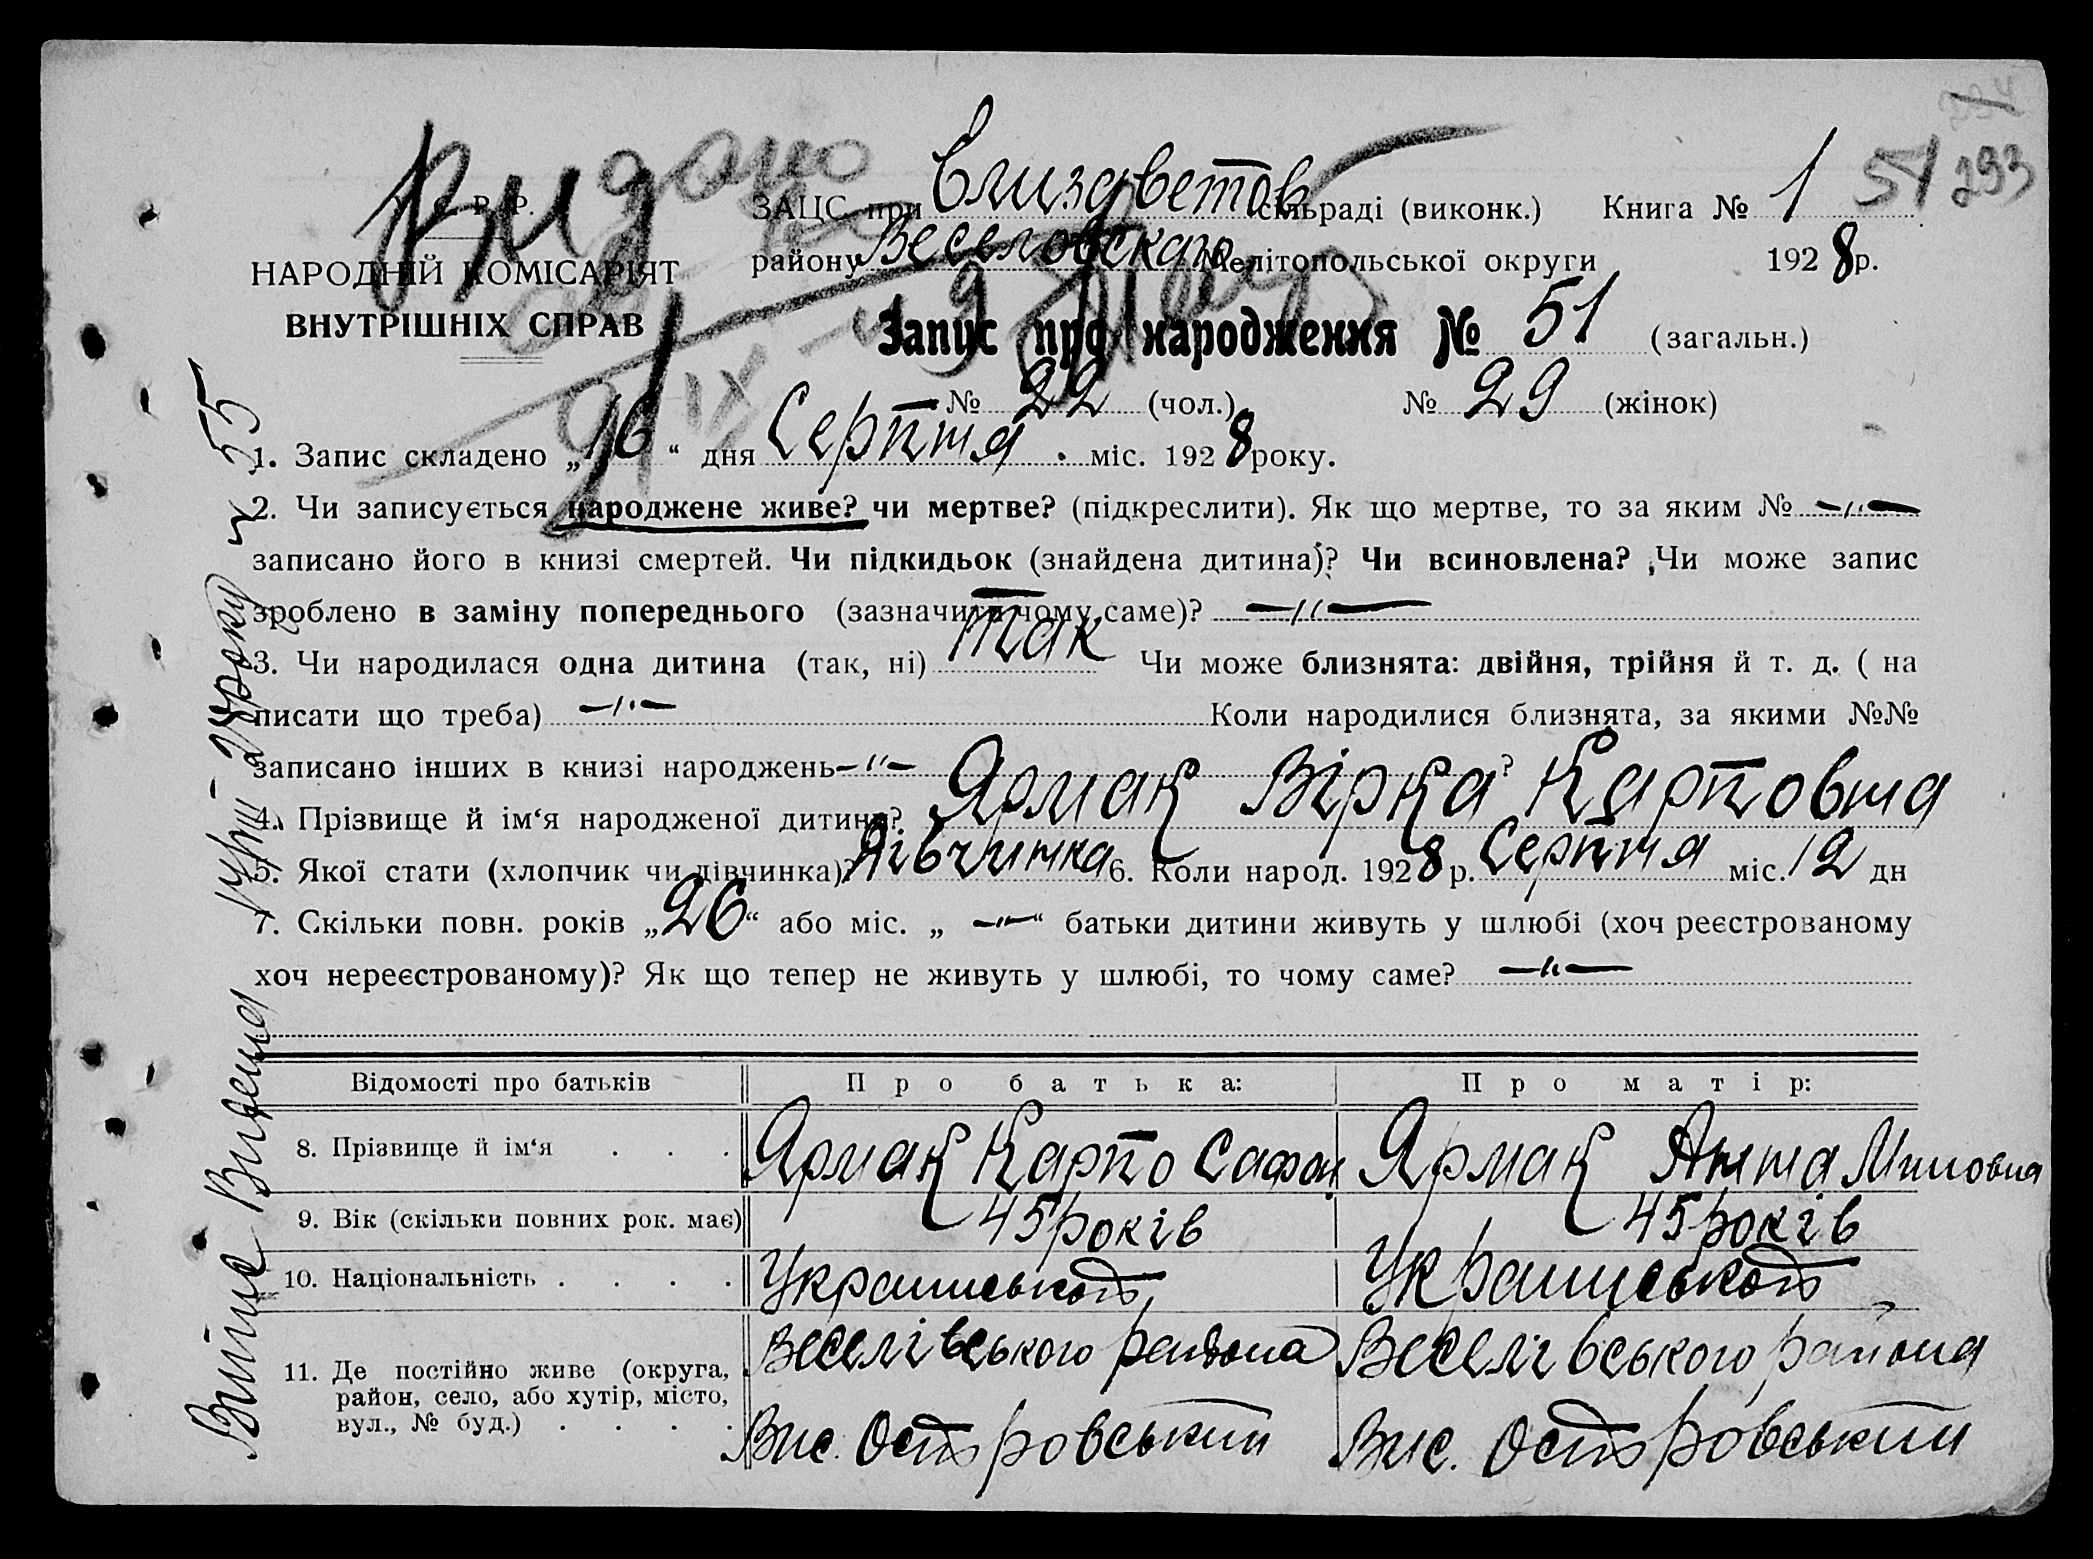 334
51 293
Видано
У. С. Р. Р.
НАРОДНІЙ КОМІСАРІЯТ
ВНУТРІШНІХ СПРАВ
ЗАЦС при Елизаветов сільраді (виконк.) Книга № 1
району Веселовскаго Мелітопольської округи 1928 р.
Запис про народження № 51 (загальн.)
№ 22 (чол.) № 29 (жінок)
1. Запис складено „16“ дня Серпня міс. 1928 року.
2. Чи записується народжене живе? чи мертве? (підкреслити). Як що мертве, то за яким № —"—
записано його в книзі смертей. Чи підкидьок (знайдена дитина)? Чи всиновлена? Чи може запис
зроблено в заміну попереднього (зазначити чому саме)? —"—
3. Чи народилася одна дитина (так, ні) так Чи може близнята: двійня, трійня й т. д. ( на
писати що треба) —"— Коли народилися близнята, за якими №№
записано інших в книзі народжень —"— ?
4. Прізвище й ім‘я народженої дитини? Ярмак Вірка Карповна
5. Якої стати (хлопчик чи дівчинка)? Дівчинка 6. Коли народ. 1928 р. Серпня міс. 12 дн
7. Скільки повн. років „26“ або міс. „—"—“ батьки дитини живуть у шлюбі (хоч реєстрованому
хоч нереєстрованому)? Як що тепер не живуть у шлюбі, то чому саме? —"—
Відомості про батьків Про батька: Про матір:
8. Прізвище й ім‘я . . . Ярмак Карпо Сафон Ярмак Анна
9. Вік (скільки повних рок. має) 45 років 45 років
10. Національність . . . . Украинськой Украинськой
11. Де постійно живе (округа, район, село, або хутір, місто, вул., № буд.) . . . .
Веселівського района Веселівського района
Вис. Островський Вис. Островський